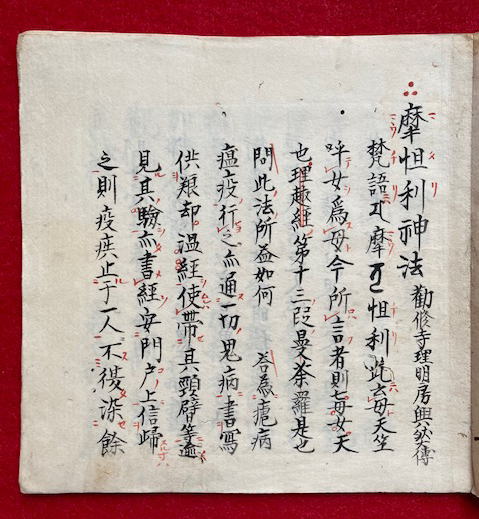 摩怛利神法 勸修寺理明房興然傳
梵語摩怛利此云母天竺
呼女爲母今所言者則七母女天
也理趣經第十三段曼荼羅是也
問此法所益如何 答為疱病
瘟疫行之亦通一切鬼病書寫
供養却温經使帶其頸臂等
見其驗亦書經安門戸上信歸
之則疫疾止于一人不復染餘